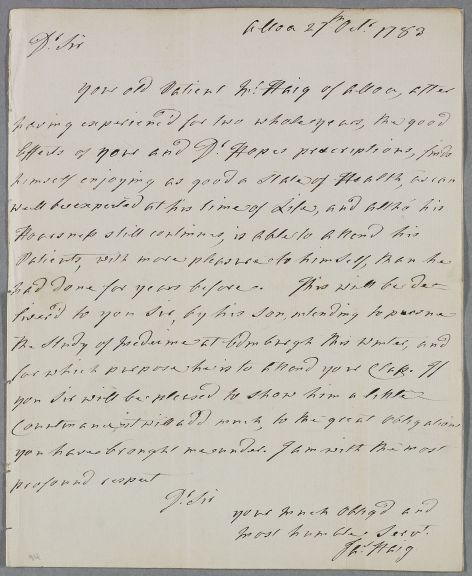 Alloa 27th Octr 1783
Dr Sir
Your old Patient Mr Haig of Alloa, after
having experienced for two whole years, the good
Effects of your and Dr Hopes prescriptions, finds
himself enjoying as good a State of Health, as can
well be expected at his time of Life, and altho' his
Hoarsness still continues, is able to attend his
Patients, with more pleasure to himself, than he
had done for years before. This will be de-
liver'd to you Sir, by his son, intending to pursue
the Study of Medicine at Edinburgh this winter, and
for which purpose he is to attend your Class. If
you Sir will be pleased to show him a little
Countenance, it will add much, to the great obligations
you have brought me under. I am with the most
profound respect
Dr Sir
your much Oblig'd and
most humble Servt.
Jas Haig